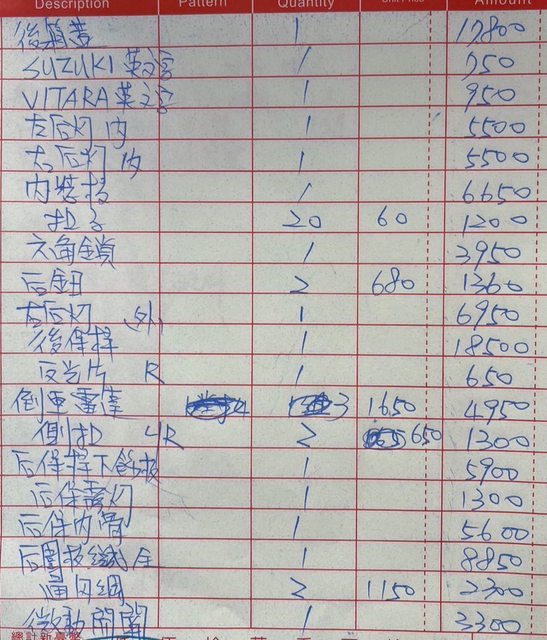 Description Pattern Quantity Unit Price Amount
後箱蓋 1 17800
SUZUKI 英文字 1 750
VITARA 英文字 1 950
左后灯 內 1 5500
右后灯 內 1 5500
內裝板 1 6650
扣子 20 60 1200
六角鎖 1 3950
后鈕 2 680 1360
右后灯 (外) 1 6950
後保桿 1 18500
反光片 R 1 650
倒車雷達 3 1650 4950
側扣 LR 2 650 1300
后保桿下飾板 1 5900
后保霧灯 1 1300
后保內骨 1 5600
后圍板 1 8850
通風網 2 1150 2300
微動開關 1 3300
總計新臺幣